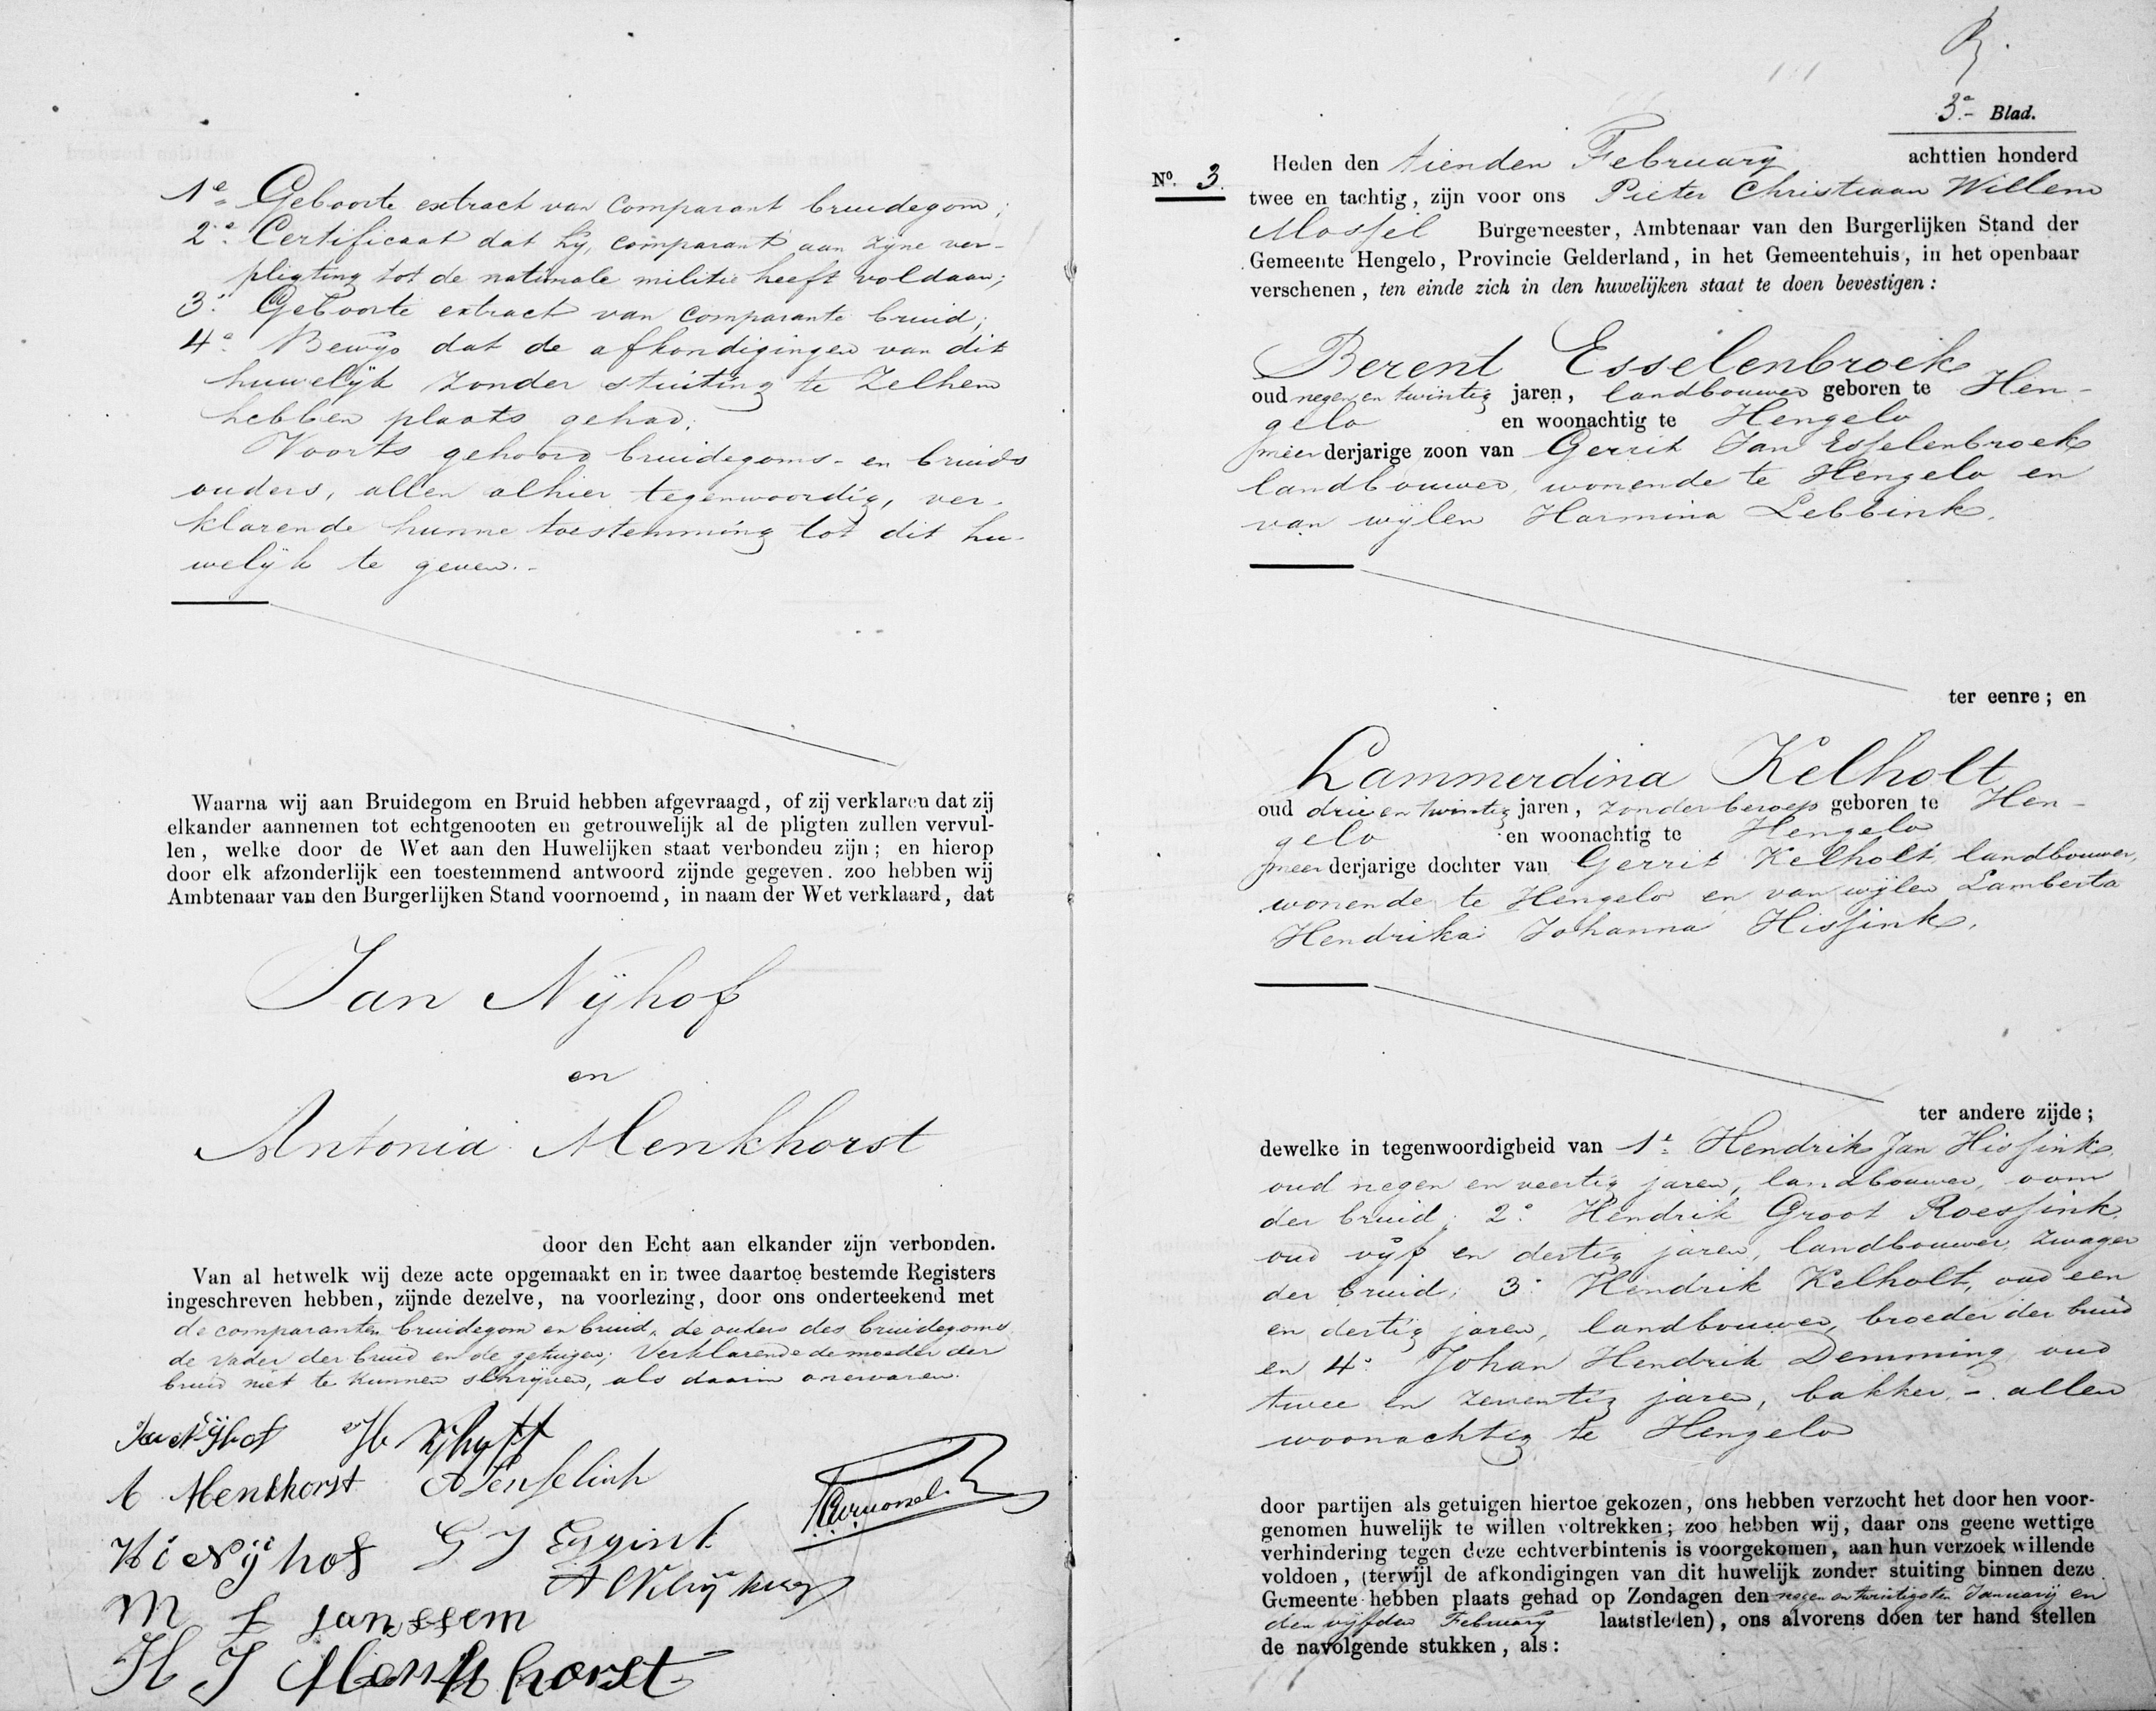 1e Geboorte extract van comparant bruidegom;
2e. Certificaat dat hy, comparant aan zyne ver-
pligting tot de nationale militie heeft voldaan;
3e. Geboorte extract van comparante bruid;
4e. Bewys dat de afkondigingen van dit
huwelyk zonder stuiting te Zelhem
hebben plaats gehad.
Voorts gehoord bruidegoms- en bruids
ouders, allen alhier tegenwoordig, ver-
klarende hunne toestemming tot dit hu-
welyk te geven.-
Waarna wij aan Bruidegom en Bruid hebben afgevraagd, of zij verklaren dat zij
elkander aannemen tot echtgenooten en getrouwelijk al de pligten zullen vervul-
len, welke door de Wet aan den Huwelijken staat verbonden zijn; en hierop
door elk afzonderlijk een toestemmend antwoord zijnde gegeven. zoo hebben wij
Ambtenaar van den Burgerlijken Stand voornoemd, in naam der Wet verklaard, dat
Jan Nÿhof
en
Antonia Menkhorst
door den Echt aan elkander zijn verbonden.
Van al hetwelk wij deze acte opgemaakt en in twee daartoe bestemde Registers
ingeschreven hebben, zijnde dezelve, na voorlezing, door ons onderteekend met
de comparanten bruidegom en bruid, de ouders des bruidegoms
de vader der bruid en de getuigen; Verklarende de moeder der
bruid niet te kunnen schrijven, als daarin onervaren.
Jan Nÿhof
A Menkhorst A Lenselink
Hi Nÿhof G J Eggink
M E janssem
H J Menkhorst
3e.- Blad.
Heden den tienden February achttien honderd
No. 3. twee en tachtig, zijn voor ons Pieter Christiaan Willem
Mossel Burgemeester, Ambtenaar van den Burgerlijken Stand der
Gemeente Hengelo, Provincie Gelderland, in het Gemeentehuis, in het openbaar
verschenen, ten einde zich in den huwelijken staat te doen bevestigen:
Berent Esselenbroek
oud negen en twintig jaren, landbouwer geboren te Hen-
gelo en woonachtig te Hengelo
meerderjarige zoon van Gerrit Jan Esselenbroek
landbouwer, wonende te Hengelo en
van wylen Harmina Lebbink.
ter eenre; en
Lammerdina Kelholt
oud drie en twintig jaren, zonder beroep geboren te Hen-
gelo en woonachtig te Hengelo
meerderjarige dochter van Gerrit Kelholt, landbouwer,
wonende te Hengelo en van wylen Lamberta
Hendrika Johanna Hissink.
ter andere zijde;
dewelke in tegenwoordigheid van 1e. Hendrik Jan Hissink,
oud negen en veertig jaren, landbouwer, oom
der bruid; 2e. Hendrik Groot Roessink,
oud vyf en dertig jaren, landbouwer, zwager
der bruid; 3e. Hendrik Kelholt, oud een
en dertig jaren, landbouwer, broeder der bruid
en 4e. Johan Hendrik Demming, oud
twee en zeventig jaren, bakker, - allen
woonachtig te Hengelo
door partijen als getuigen hiertoe gekozen, ons hebben verzocht het door hen voor-
genomen huwelijk te willen voltrekken; zoo hebben wij, daar ons geene wettige
verhindering tegen deze echtverbintenis is voorgekomen, aan hun verzoek willende
voldoen, (terwijl de afkondigingen van dit huwelijk zonder stuiting binnen deze
Gemeente hebben plaats gehad op Zondagen den negen en twintigsten January en
den vyfden February laatstleden), ons alvorens doen ter hand stellen
de navolgende stukken, als: